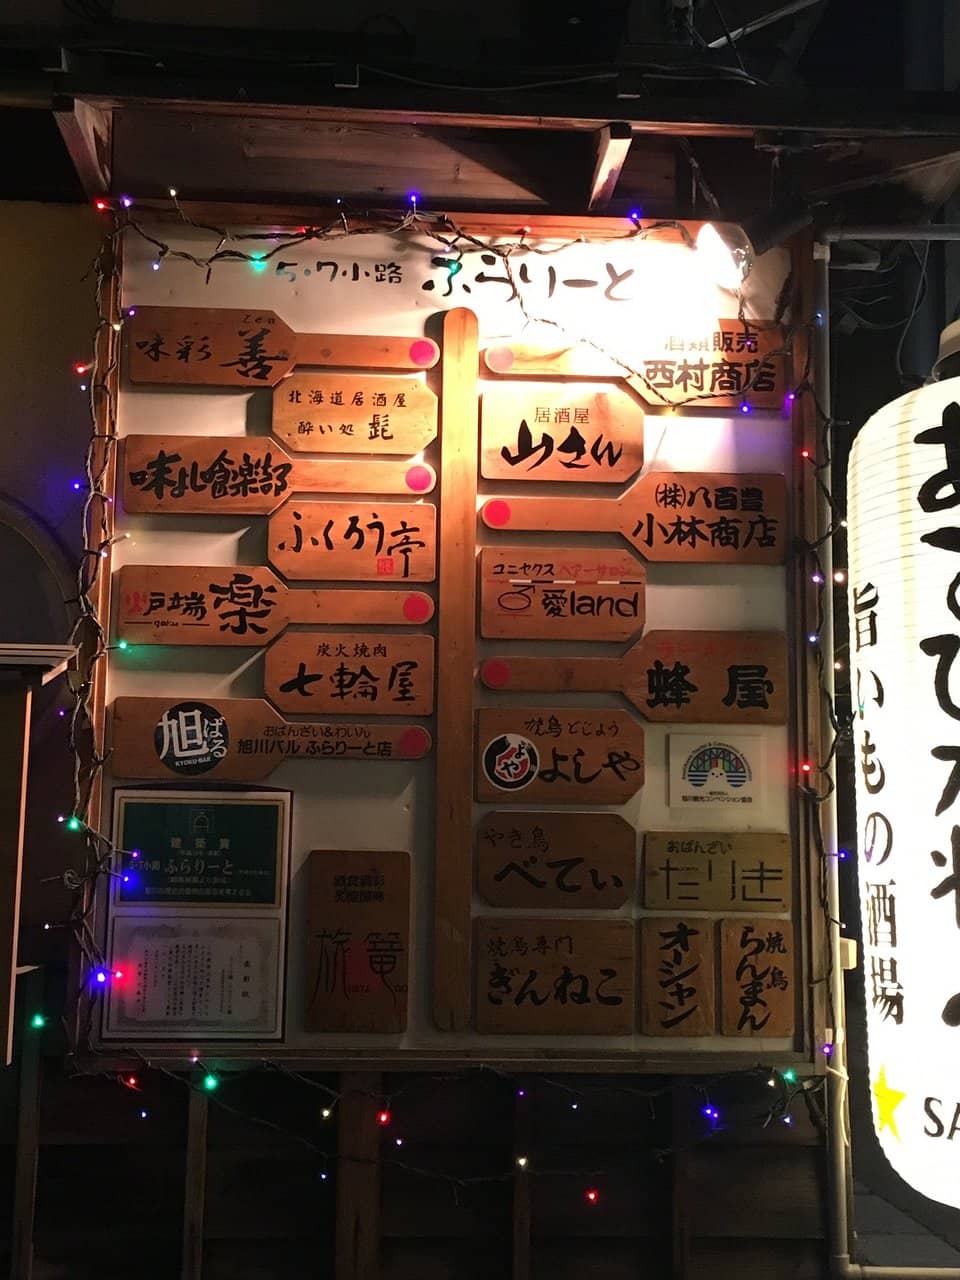 5・7小路 ふらりーと
Zen
味彩 善
北海道居酒屋
酔い処 髭
味よし倶楽部
ふくろう亭
炉端 楽
gaku
炭火焼肉
七輪屋
旭ばる
KYOKU-BAR
おばんざい&わいん
旭川バル ふらりーと店
建築賞
5・7小路
ふらりーと
表彰状
旅籠
酒類販売
西村商店
居酒屋
山さん
(株)八百豊
小林商店
ユニセクス ヘアーサロン
愛land
蜂屋
焼鳥どじょう
よしや
旭川観光コンベンション協会
やき鳥
べてぃ
おばんざい
たりき
焼鳥専門
ぎんねこ
オーシャン
焼鳥
らんまん
旨いもの酒場
SA